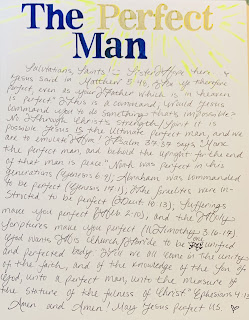 The Perfect
Man
Salutations, Saints! Sister Hover here &
Jesus said in Matthew 5:48, "Be ye therefore
perfect, even as your Father which is in heaven
is perfect." This is a command, would Jesus
command us to do something that's impossible?
No. Through Christ's strength/power it is
possible. Jesus is the ultimate perfect man, and we
are to emulate Him! Psalm 37:37 says, "Mark
the perfect man, and behold the upright: for the end
of that man is peace." Noah was perfect in his
generations (Genesis 6:9), Abraham was commanded
to be perfect (Genesis 17:1), the Israelites were in-
structed to be perfect (Deut 18:13), sufferings
make you perfect (Heb 2:10), and the Holy
Scriptures make you perfect (II Timothy 3:16-17)
God wants His church, Bride to be unified
and perfected body "Till we all come in the unity
of the faith, and of the knowledge of the Son of
God, unto a perfect man, unto the measure of
the stature of the fulness of Christ" Ephesians 4:13
Amen and Amen! May Jesus perfect us